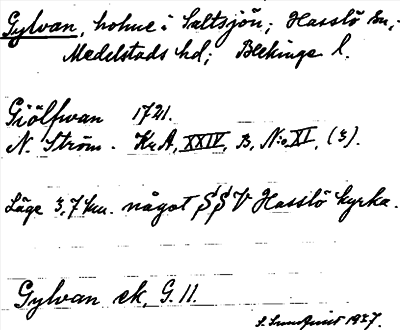 Gylvan, holme i Saltsjön; Hasslö sn;
Medelstads hd; Blekinge l.
Giölfwan 1721.
N. Ström. KrA, XXIV, B, N:o XI, (3).
Läge 3,7 km. något SSV Hasslö kyrka.
Gylvan ek, G. 11.
S. Lundquist 1937.